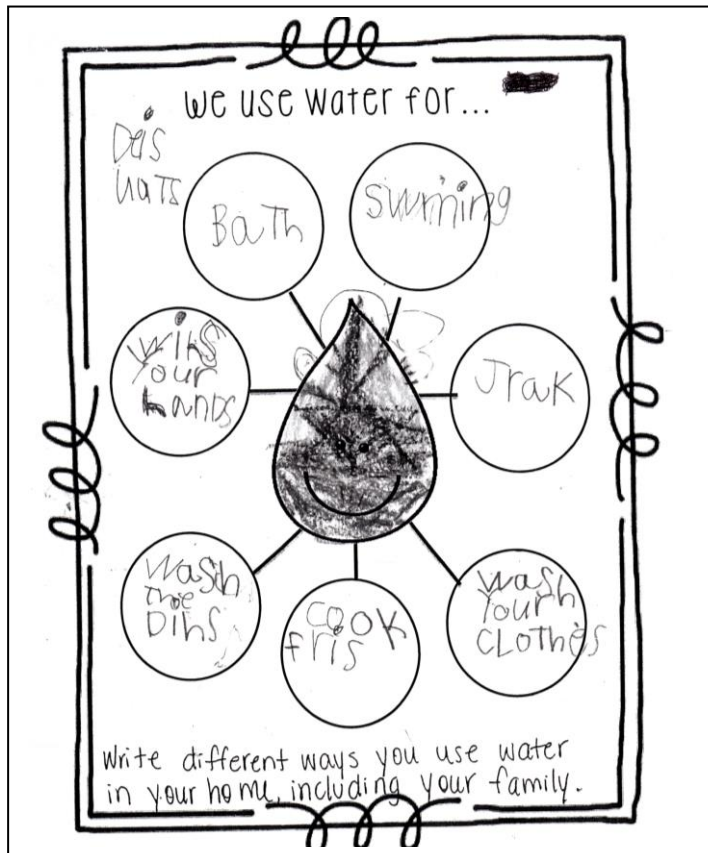 We use water for...
Deis
uats
BaTh
Swiming
wihs
Your
hands
JraK
Wash
The
Dihs
COOK
fris
wash
Your
CLoThes
Write different ways you use water
in your home, including your family.